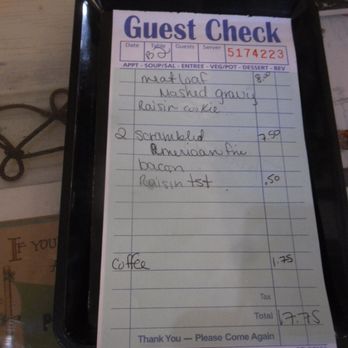 Guest Check
Date Table Guests Server 5174223
APPT - SOUP/SAL - ENTREE - VEG/POT - DESSERT - BEV
meatloaf 8.00
Mashed gravy
Raisin cookie
2 scrambled 7.50
American
bacon
Raisin tst .50
IF YOU
coffee 1.75
Tax
Total 17.75
Thank You — Please Come Again